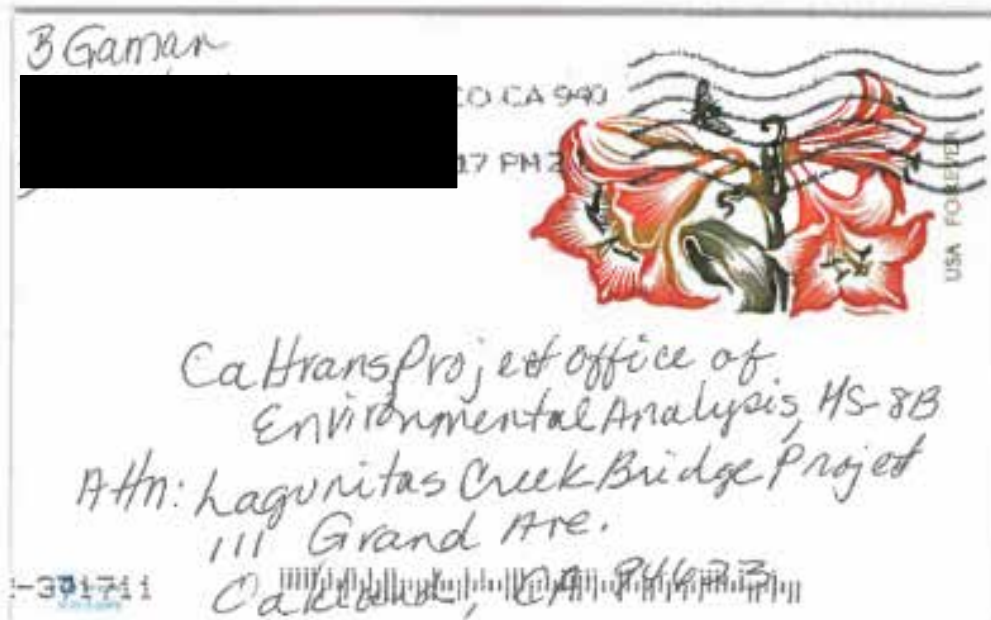 B Gaman
CO CA 940
17 PM 2
USA FOREVER
Caltrans Project office of
Environmental Analysis, MS-8B
Attn: Lagunitas Creek Bridge Project
111 Grand Ave.
Oakland, CA 94623